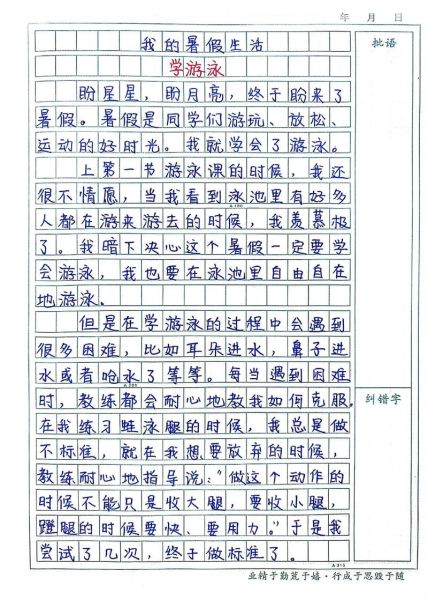 年 月 日
我的暑假生活
批语
学游泳
盼星星，盼月亮，终于盼来了
暑假。暑假是同学们游玩、放松、
运动的好时光。我就学会了游泳。
上第一节游泳课的时候，我还
很不情愿，当我看到泳池里有好多
人都在游来游去的时候，我羡慕极
了。我暗下决心这个暑假一定要学
会游泳，我也要在泳池里自由自在
地游泳。
但是在学游泳的过程中会遇到
很多困难，比如耳朵进水，鼻子进
水或者呛水了等等。每当遇到困难
时，教练都会耐心地教我如何克服。
纠错字
在我练习蛙泳腿的时候，我总是做
不标准，就在我想要放弃的时候，
教练耐心地指导说：“做这个动作的
时候不能只是收大腿，要收小腿，
蹬腿的时候要快、要用力。”于是我
尝试了几次，终于做标准了。
业精于勤荒于嬉·行成于思毁于随